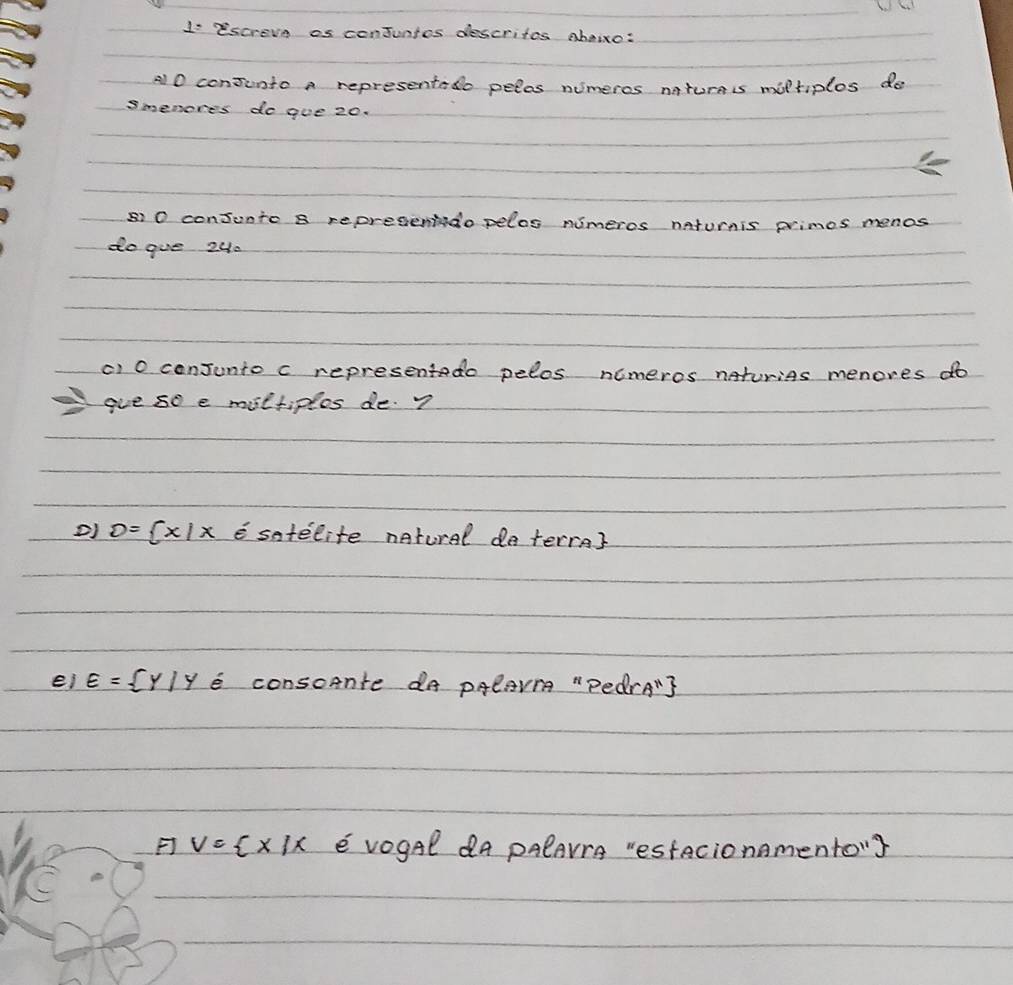 1- Escreva os conjuntos descritos abaixo:
A) O conjunto A representado pelos números naturais múltiplos de
3 menores do que 20.
B) O conjunto B representado pelos números naturais primos menos
do que 24.
C) O conjunto C representado pelos números naturias menores do
que 50 e múltiplos de. 7
D) D = {x/x é satélite natural da terra}
E) E = {Y/Y é consoante da palavra "Pedra"}
F) V = {x/x é vogal da palavra "estacionamento"}